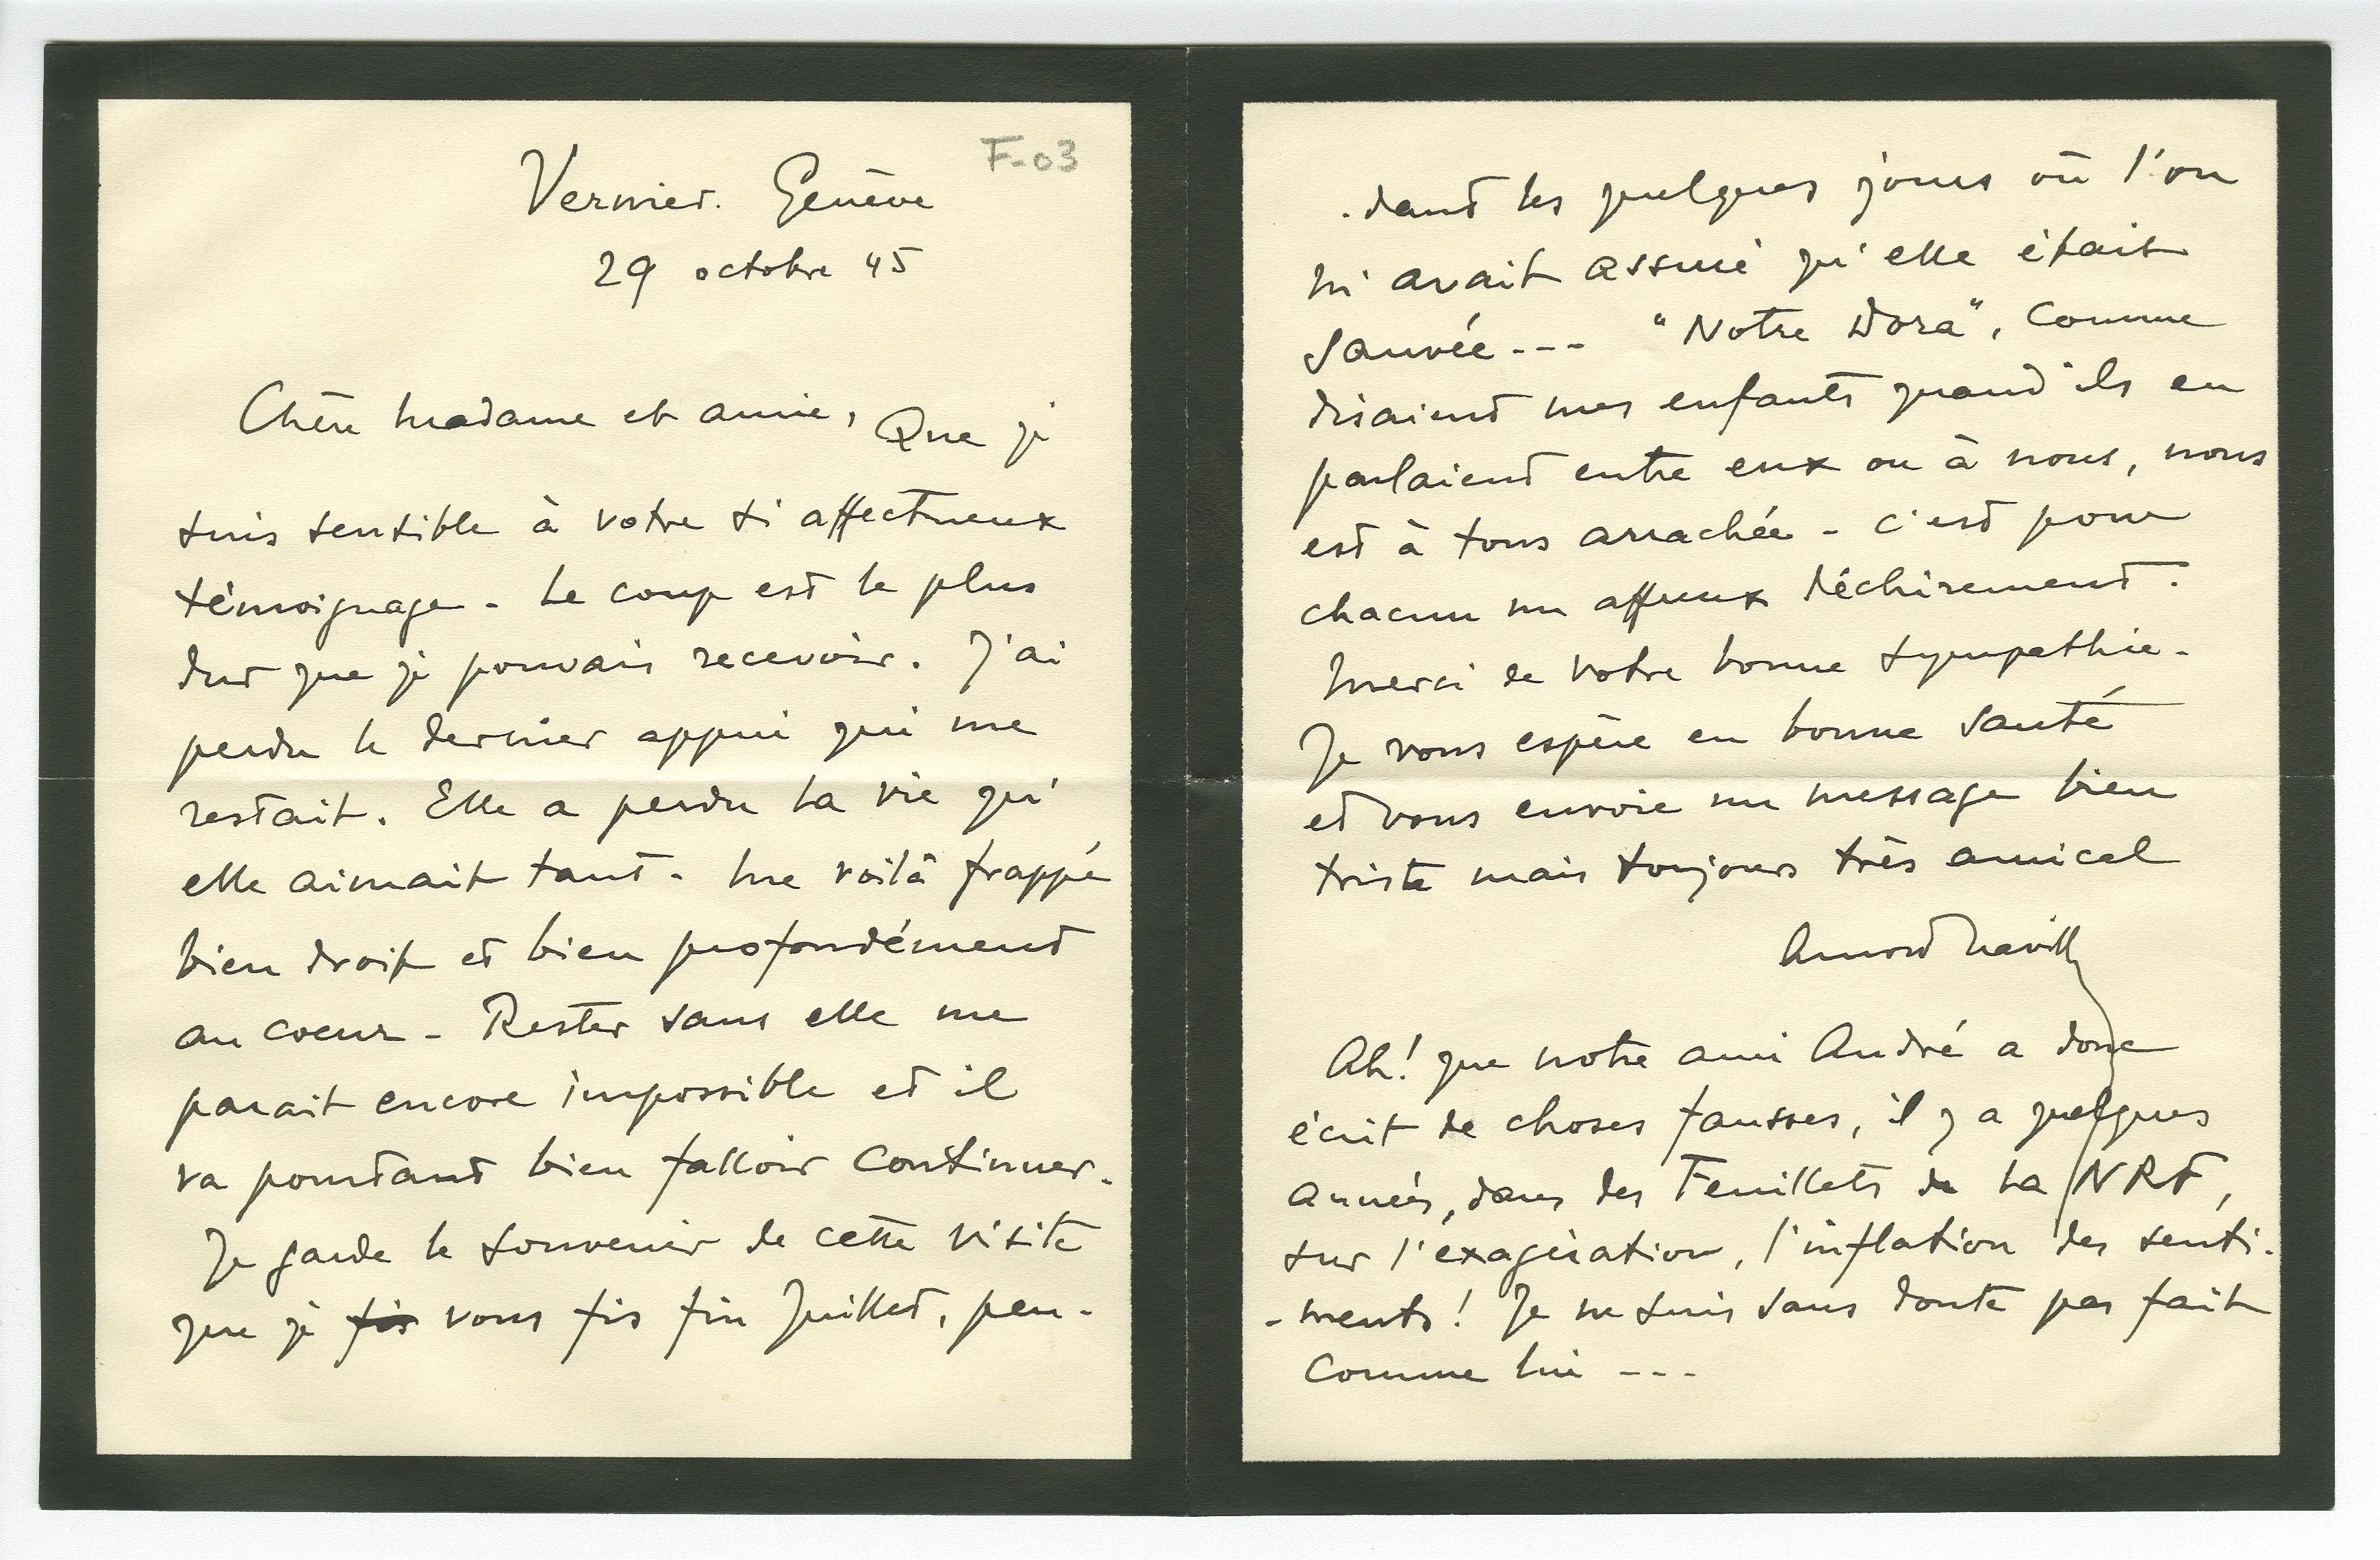 F-03
Vernier. Genève
29 octobre 45
Chère Madame et amie, Que je
suis sensible à votre si affectueux
témoignage - Le coup est le plus
dur que je pouvais recevoir. J'ai
perdu le dernier appui qui me
restait. Elle a perdu la vie qu'
elle aimait tant - Me voilà frappé
bien droit et bien profondément
au coeur - Rester sans elle me
parait encore impossible et il
va pourtant bien falloir continuer.
Je garde le souvenir de cette visite
que je fis vous fis fin Juillet, pen-
-dant les quelques jours où l'on
m'avait assuré qu'elle était
sauvée --- "Notre Dora", comme
disaient mes enfants quand ils en
parlaient entre eux ou à nous, nous
est à tous arrachée - c'est pour
chacun un affreux déchirement.
Merci de votre bonne sympathie -
Je vous espère en bonne santé
et vous envoie un message bien
triste mais toujours très amical
Arnold Naville
Ah! que notre ami André a donc
écrit de choses fausses, il y a quelques
années, dans des Feuillets de la NRF,
sur l'exagération, l'inflation des senti-
-ments! Je ne suis sans doute pas fait
comme lui ---